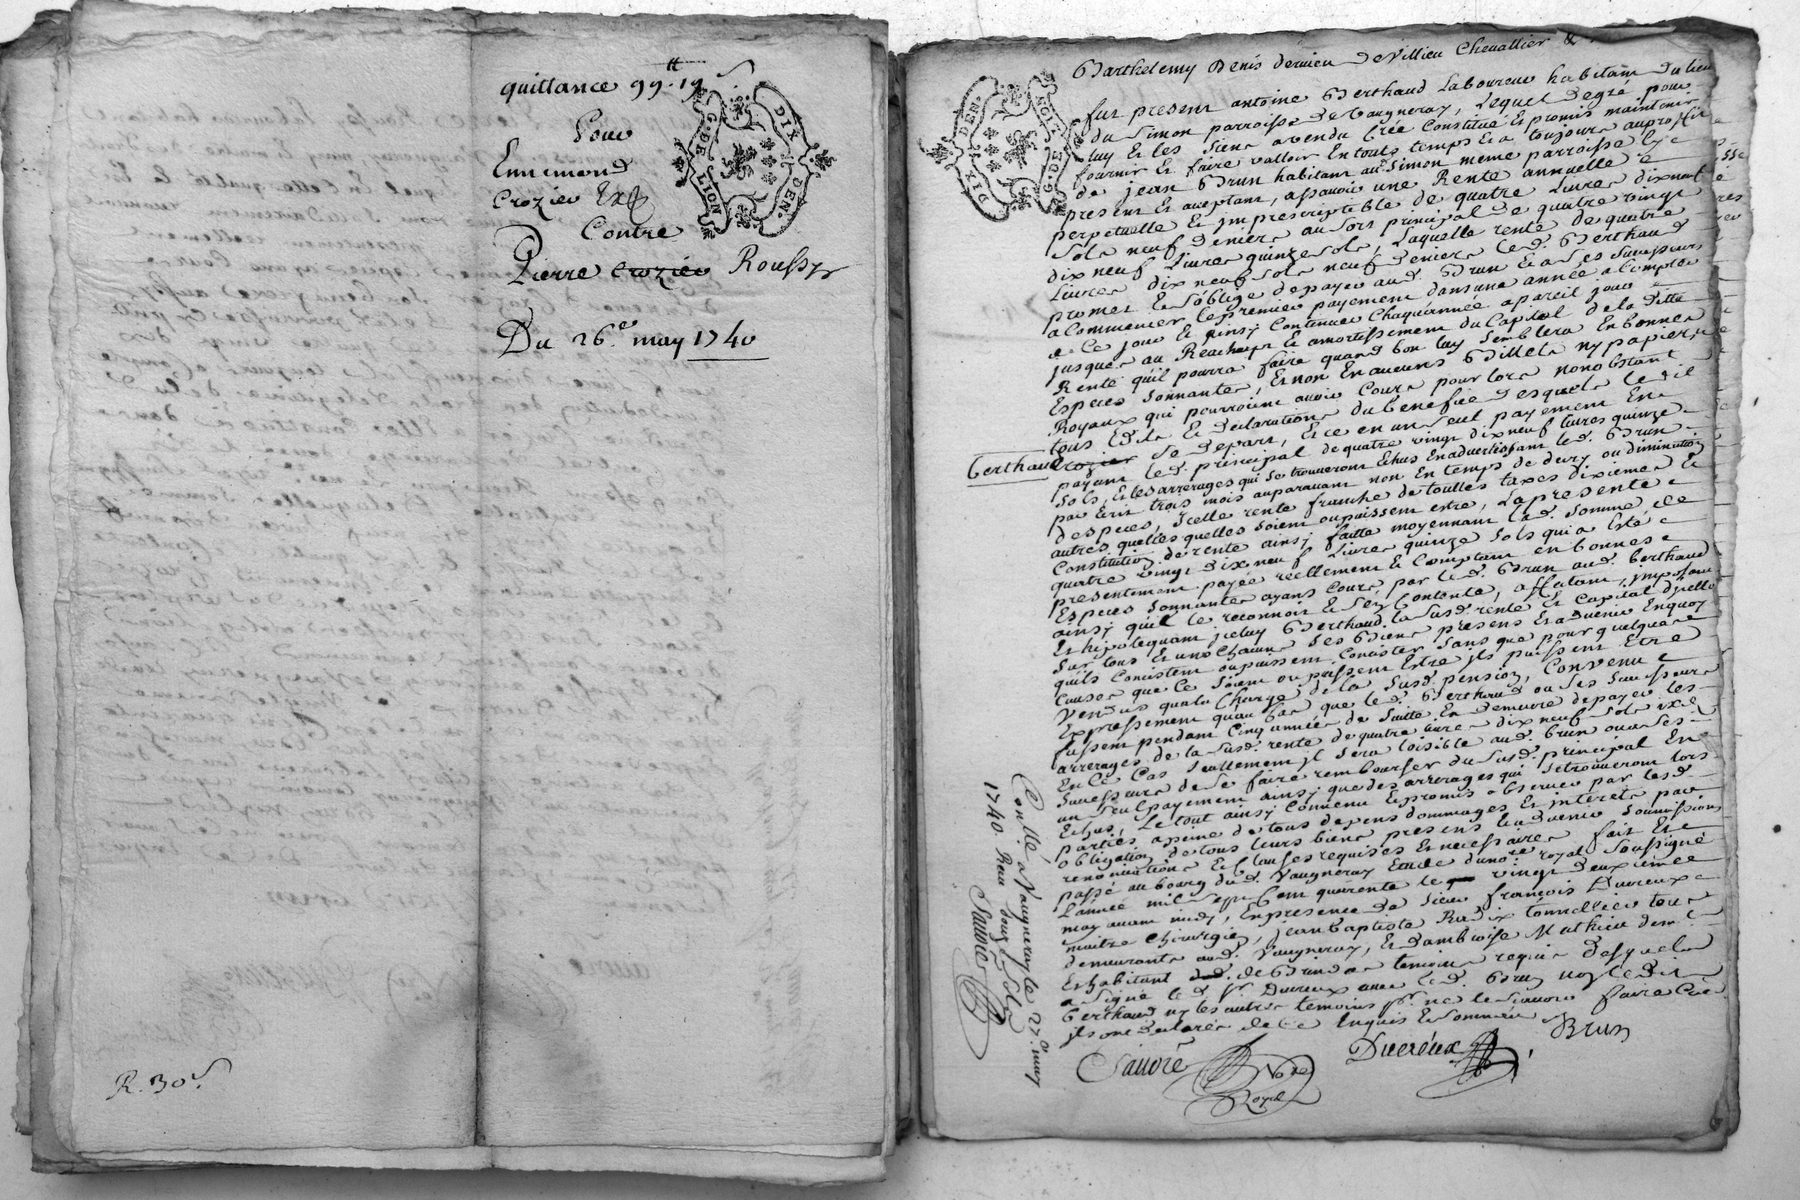 quittance 99tt 19s
Pour
Ennemond
Crozier
Contre
Pierre crozier Roussy
Du 26e may 1740
R. 30s
G. DE LION
DIX DEN.
G. DE LION
DIX DEN.
Barthelemy Denis dervieu de Villieu Chevallier &
fut present antoine Berthaud Laboureur habitant du lieu
du Simon parroisse de Vaugneray, Lequel de gré pour
luy et les siens a vendu créé Constitué et promis maintenir
fournir et faire valloir en touts temps et a toujours au proffit
de jean Brun habitant au Simon meme parroisse icy
present et aceptant, assavoir une Rente annuelle
perpetuelle et imprescriptible de quatre Livres dixneuf
sols neuf deniers au sort principal de quatre vingt
dix neuf Livres quinze sols, Laquelle rente de quatre
Livres dix neuf sols neuf deniers led. Berthaud
promet et s'oblige de payer aud. Brun et a ses successeurs
a Commencer le premier payement dans une année a Compter
de Ce jour et ainsy Continuer Chaque année a pareil jour
jusques au Reachapt et amortissement du Capital de la ditte
Rente qu'il pourra faire quand bon luy semblera En bonnes
Especes sonnantes, et non En aucuns Billets ny papiers
Royaux qui pourroient avoir Cours pour lors nonobstant
tous Edits et declarations du benefice desquels le dit
Berthaud crozier se depart, et ce en un seul payement En
payant led. principal de quatre vingt dix neuf livres quinze
sols, et les arrerages qui se trouveront Echus En advertissant led. Brun
par Ecrit trois mois auparavant non En temps de decry ou diminution
d'especes, icelle rente franche de touttes taxes dixiemes et
autres quelles quelles soient ou puissent estre, La presente
Constitution de rente ainsy faitte moyennant lad. somme de
quatre vingt dix neuf Livres quinze sols qui a Eté
presentement payée reellement et Comptant en bonnes
Especes sonnantes ayans Cours par led. Brun aud. berthaud
ainsy qu'il le reconnoit et s'en Contente, affectant, imposant
Et hipotequant iceluy Berthaud la susd. rente et Capital d'icelle
sur tous et un Chacun ses Biens presens et a venir En quoy
qu'ils Consistent ou puissent Consister sans que pour quelque
Cause que Ce soient ou puissent Estre ils puissent Etre
vendus qu'a la Charge de la susd. pension, Convenu
Expressement qu'au Cas que led. Berthaud ou ses successeurs
fussent pendant Cinq années de suitte En demeure de payer les
arrerages de la susd. rente de quatre livres dix neuf sols
En Ce Cas seullement il sera loisible aud. brun ou a ses
successeurs de se faire rembourser du susd. principal En
un seul payement ainsy que des arrerages qui se trouveront lors
Echus, Le tout ainsy Convenu et promis observer par lesd.
parties a peine de tous depens dommages et interets par
obligation de tous leurs biens presens et a venir soumissions
renonciations et Clauses requises et necessaires fait et
passé au bourg dud. Vaugneray Etude du nore. royal soussigné
L'année mil sept Cent quarente le vingt deuxieme
may avant midy, En presence de sieur françois Ducreux
maitre Chirurgien, jean baptiste Rudix tonnellier tous
demeurants aud. Vaugneray, et d'ambroise Mathieu dem.t
Et habitant de Brindas temoins requis desquels
a signé led. sr. Ducreux avec led. Brun non ledit
berthaud ny les autres temoins pr. ne le scavoir faire Come
ils ont declarés de Ce Enquis et sommés
Savoie Nore Royal
Ducreux
Brun
Con.llé a Vaugneray le 27e may
1740 Reçu douze sols
Savoie